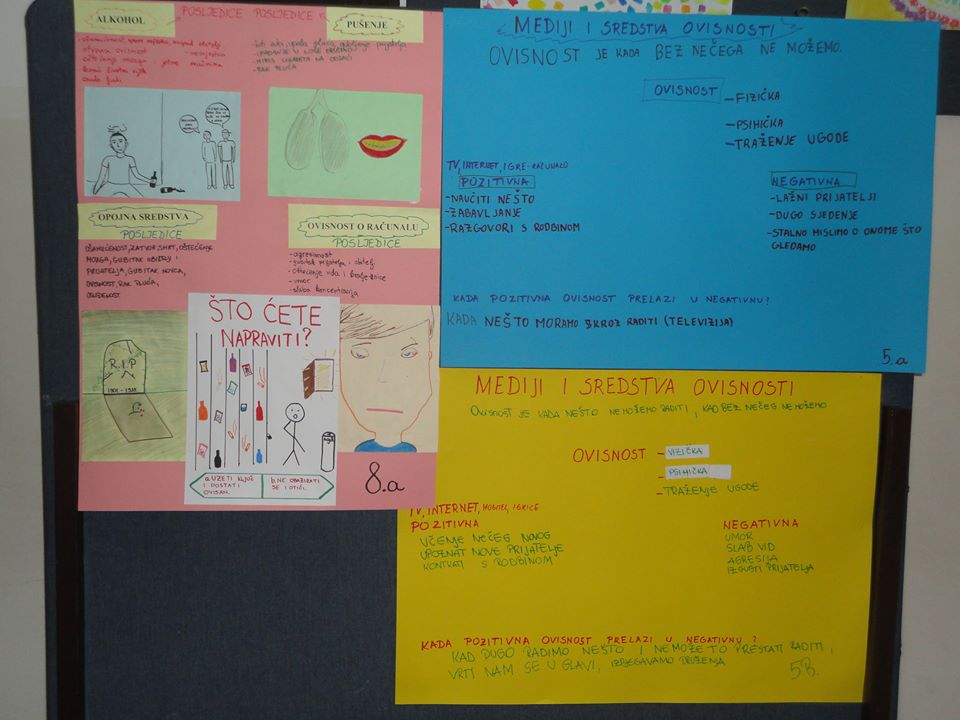 ALKOHOL
POSLJEDICE
POSLJEDICE
PUŠENJE
- RAK PLUĆA
OPOJNA SREDSTVA
POSLJEDICE
OŠAMUĆENOST, ZATVOR, SMRT, OŠTEĆENJE
MOZGA, GUBITAK OBITELJI I
PRIJATELJA, GUBITAK NOVCA,
OVISNOST, RAK PLUĆA,
OVISNOST O RAČUNALU
POSLJEDICE
- agresivnost
- gubitak prijatelja i obitelji
- oštećenje vida i kralježnice
- umor
- slaba koncentracija
R.I.P
ŠTO ĆETE
NAPRAVITI?
a. UZETI KLJUČ
I POSTATI
OVISAN.
b. NE OBAZIRATI
SE I OTIĆI.
8.a
MEDIJI I SREDSTVA OVISNOSTI
OVISNOST JE KADA BEZ NEČEGA NE MOŽEMO.
OVISNOST
- FIZIČKA
- PSIHIČKA
- TRAŽENJE UGODE
TV, INTERNET, IGRE-RAČUNALO
POZITIVNA
- NAUČITI NEŠTO
- ZABAVLJANJE
- RAZGOVORI S RODBINOM
NEGATIVNA
- LAŽNI PRIJATELJI
- DUGO SJEDENJE
- STALNO MISLIMO O ONOME ŠTO
GLEDAMO
KADA POZITIVNA OVISNOST PRELAZI U NEGATIVNU?
KADA NEŠTO MORAMO SKROZ RADITI (TELEVIZIJA)
5.a
MEDIJI I SREDSTVA OVISNOSTI
OVISNOST JE KADA NEŠTO NE MOŽEMO RADITI, KAD BEZ NEČEG NE MOŽEMO
OVISNOST - VIZIČKA
- PSIHIČKA
- TRAŽENJE UGODE
TV, INTERNET, MOBITEL, IGRICE
POZITIVNA
UČENJE NEČEG NOVOG
UPOZNAT NOVE PRIJATELJE
KONTAKTI S RODBINOM
NEGATIVNA
UMOR
SLAB VID
AGRESIJA
IZGUBITI PRIJATELJA
KADA POZITIVNA OVISNOST PRELAZI U NEGATIVNU?
KAD DUGO RADIMO NEŠTO I NEMOŽE TO PRESTATI RADITI,
VRTI NAM SE U GLAVI, IZBJEGAVAMO DRUŽENJA
5B.